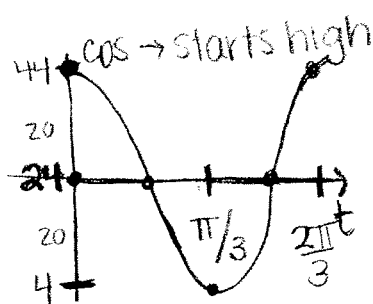 cos → starts high
44
20
24
20
π/3
2π/3
t
4